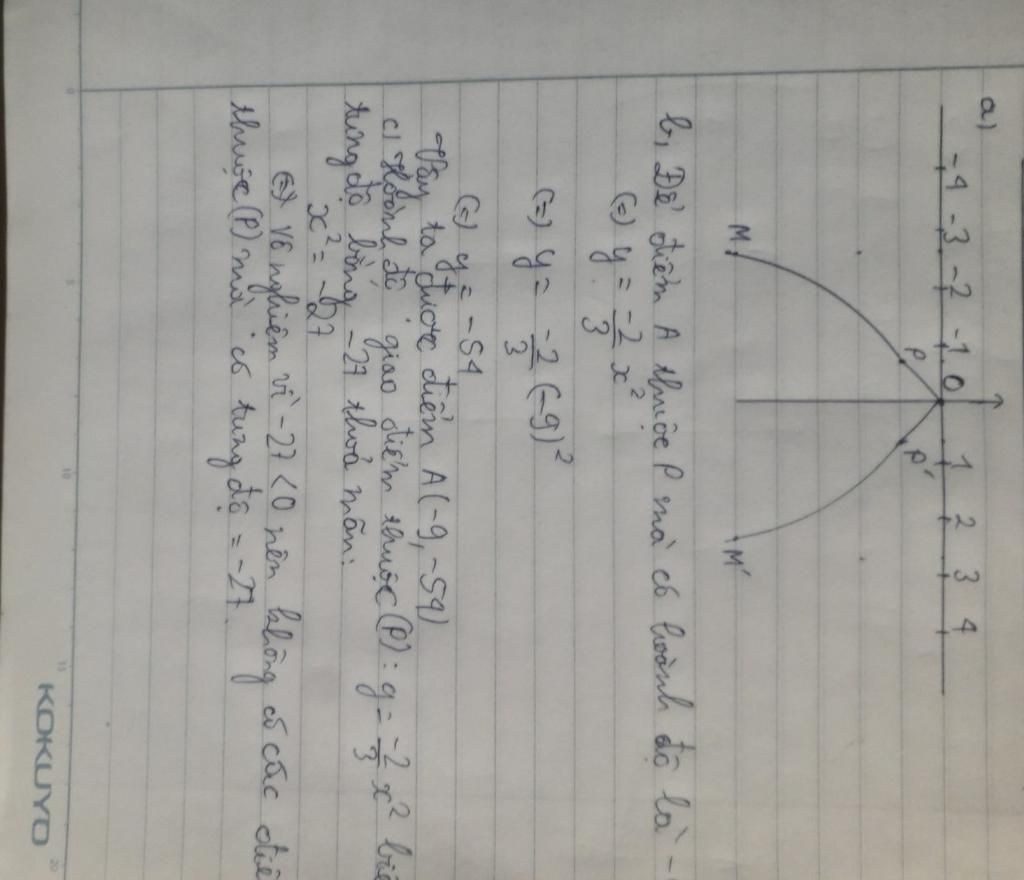 a,
-4 -3 -2 -1 0 1 2 3 4
P P'
M M'
b, Để điểm A thuộc P mà có hoành độ là -
(=) y = -2/3 x²
(=) y = -2/3 (-9)²
(=) y = -54
Vậy ta được điểm A(-9, -54)
c) Hoành độ giao điểm thuộc (P): y = -2/3 x² biế
tung độ bằng -27 thoả mãn:
x² = -27
(=) Vô nghiệm vì -27 < 0 nên không có các điể
thuộc (P) mà có tung độ = -27.
KOKUYO
0 5 10 15 20